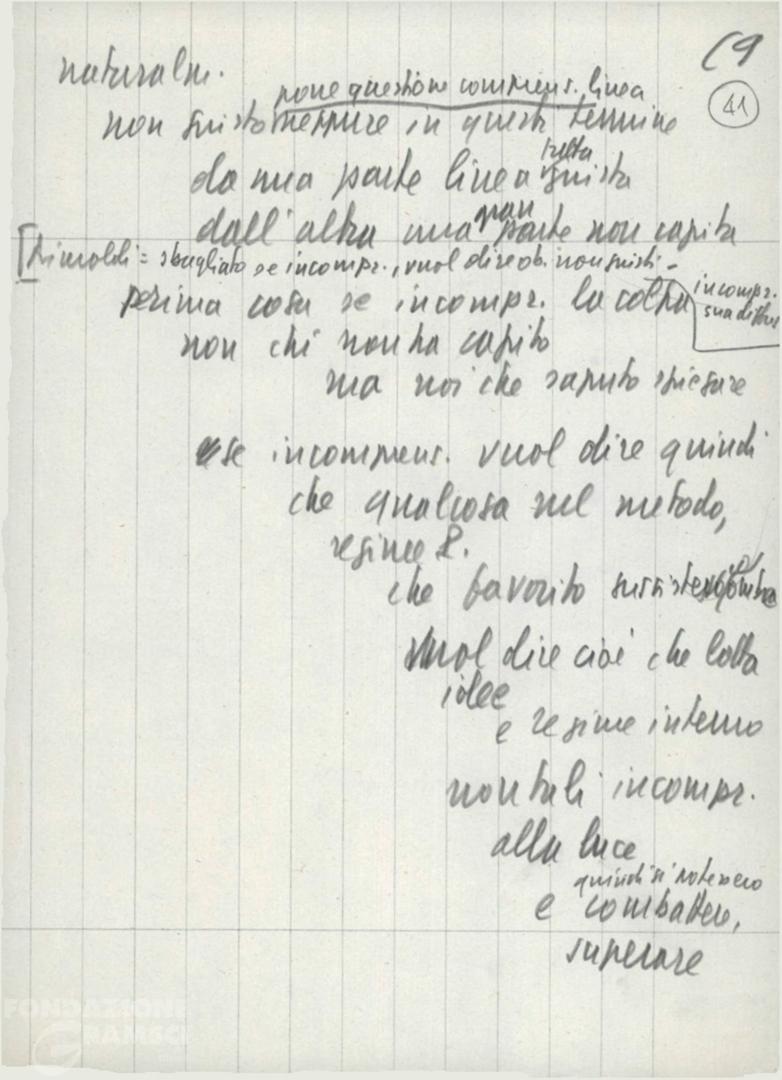 C9
41
naturalm.
pone questione comprens. linea
non giusto neppure in questi termine
da una parte linea tutta giusta
dall'altra una gran parte non capita
[Rimoldi = sbagliato se incompr., vuol dire ob. non giusti -
incompr.
prima cosa se incompr. la colpa
non chi non ha capito
ma noi che saputo spiegare
se incomprens. vuol dire quindi
che qualcosa nel metodo,
regime P.
che favorito sussistere
vuol dire cioè che lotta
idee
e regime interno
non tali incompr.
alla luce
quindi si potessero
e combattere,
superare
FONDAZIONE
GRAMSCI